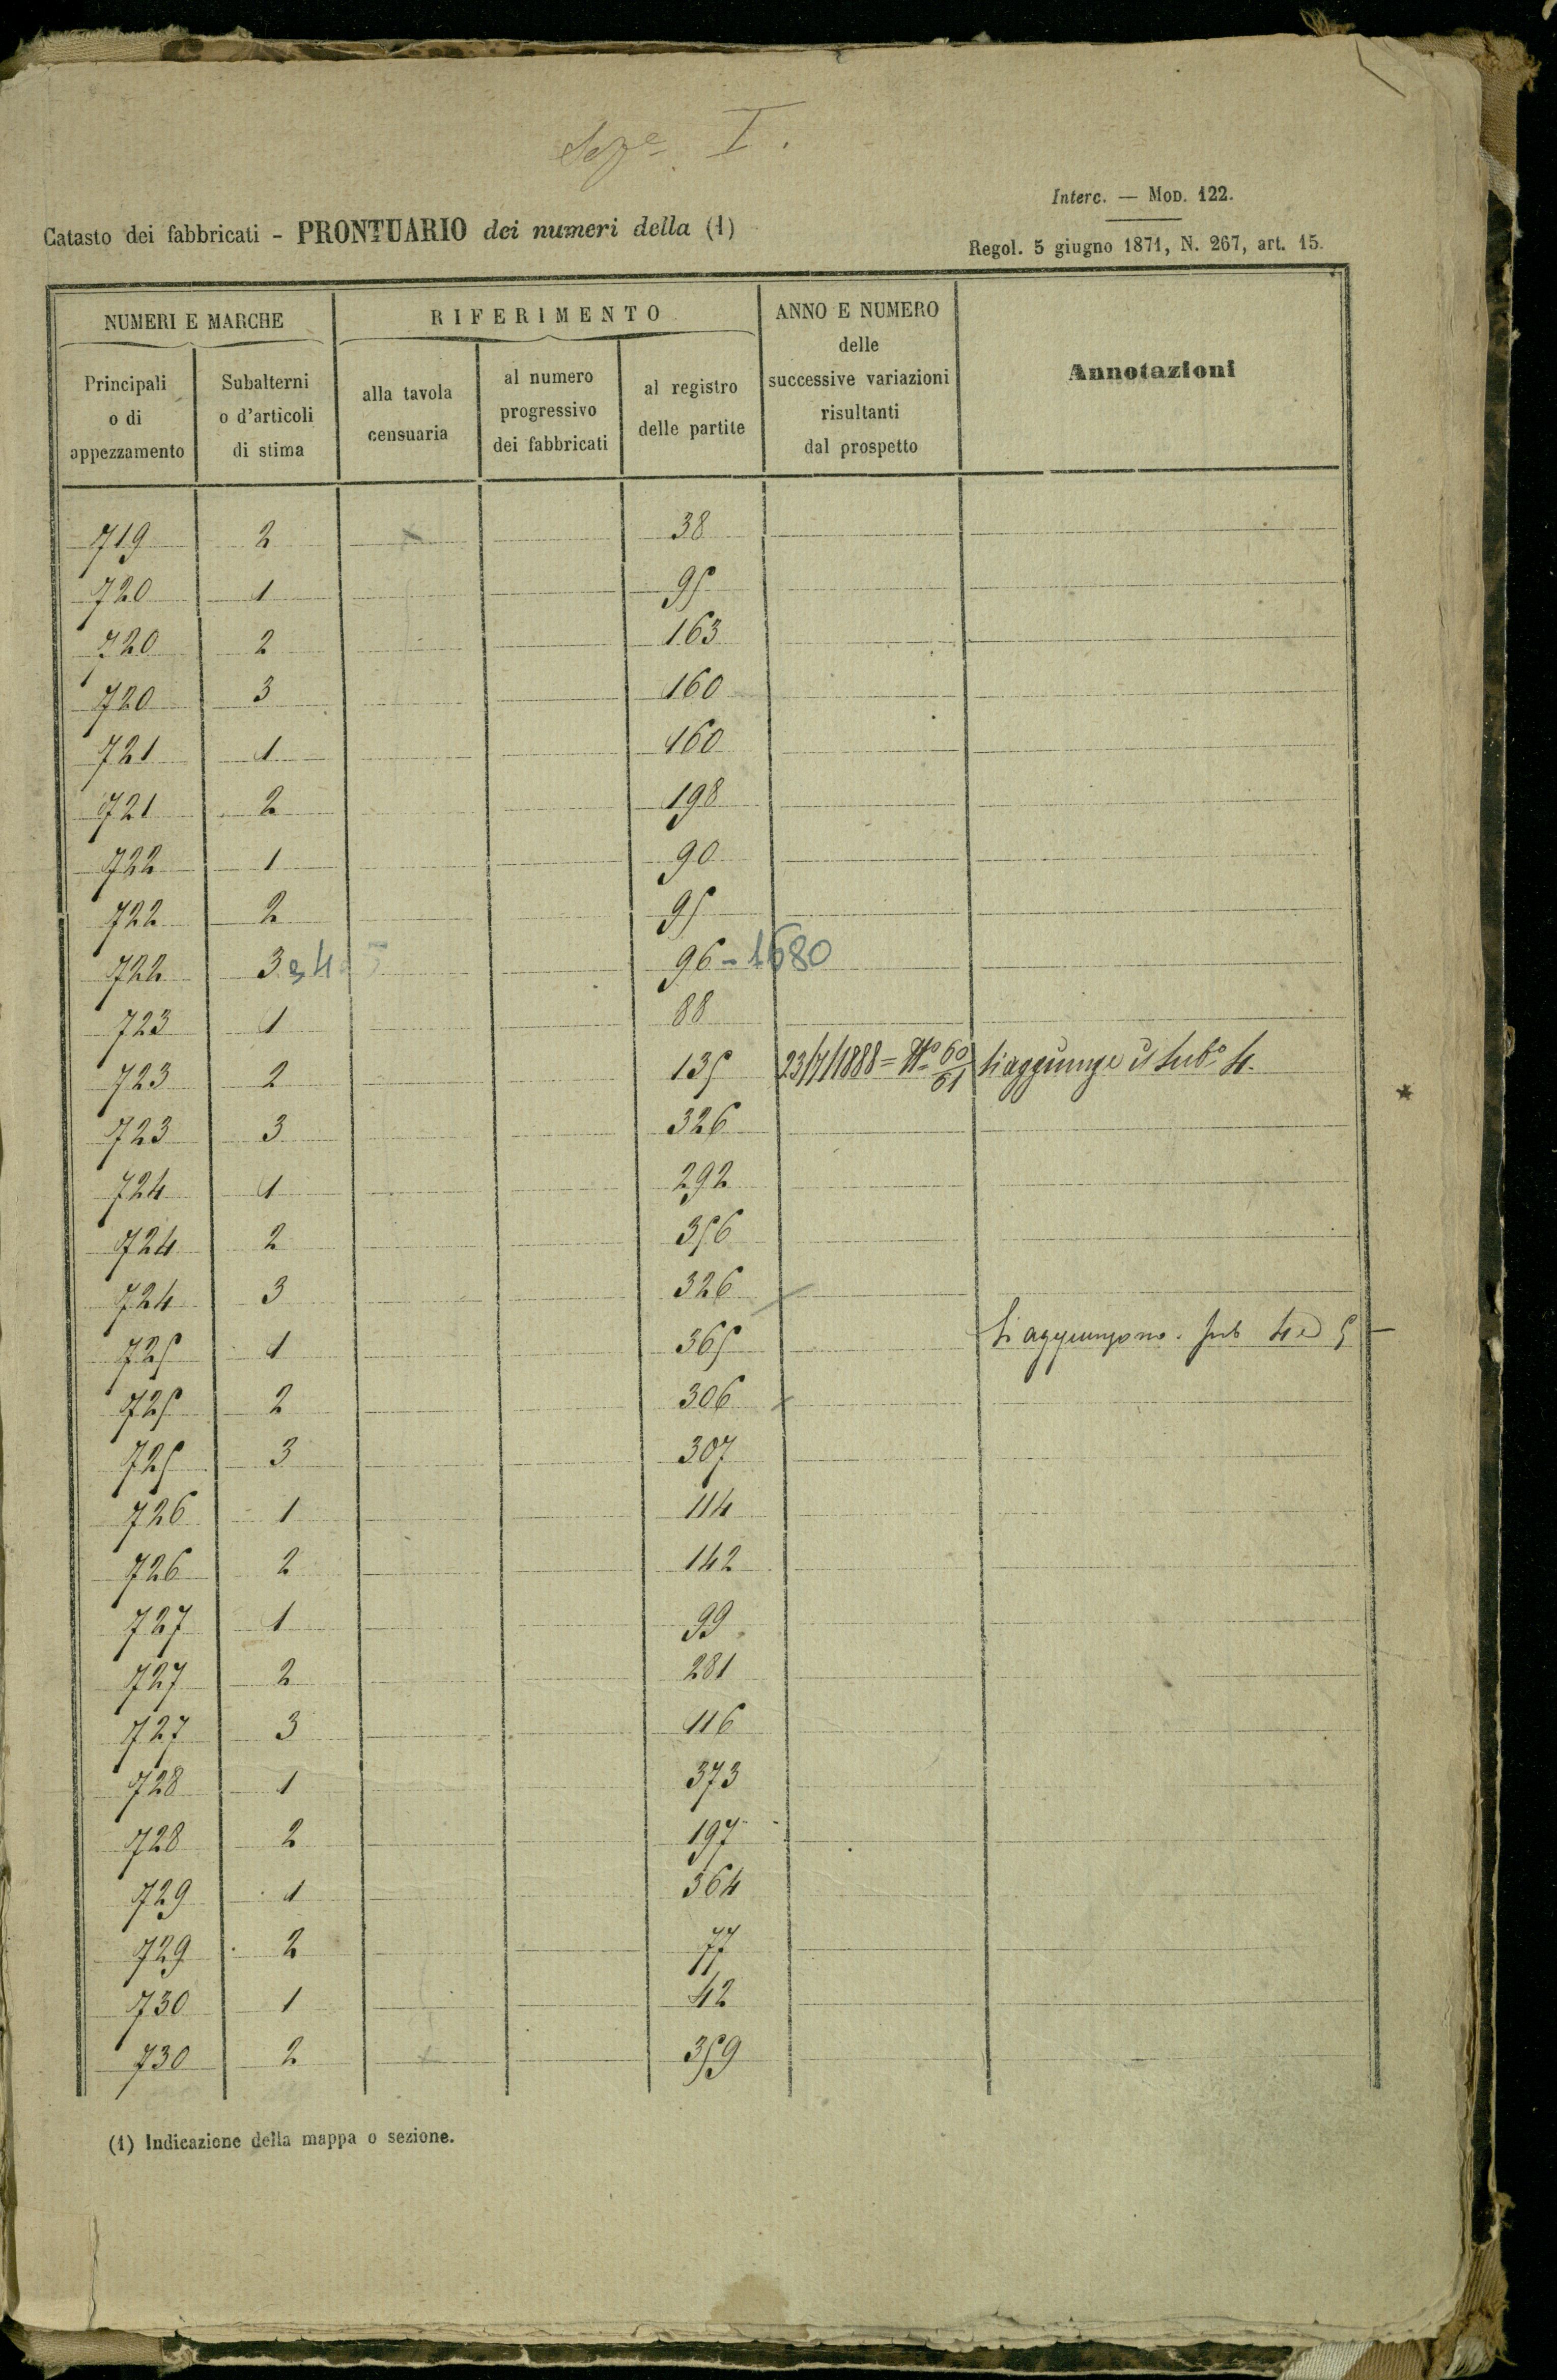 Seze I.
Interc. — MOD. 122.
Catasto dei fabbricati - PRONTUARIO dei numeri della (1)
Regol. 5 giugno 1871, N. 267, art. 15.
NUMERI E MARCHE
RIFERIMENTO
ANNO E NUMERO
delle
successive variazioni
risultanti
dal prospetto
Annotazioni
Principali
o di
appezzamento
Subalterni
o d'articoli
di stima
alla tavola
censuaria
al numero
progressivo
dei fabbricati
al registro
delle partite
719 2 38
720 1 95
720 2 163
720 3 160
721 1 160
721 2 198
722 1 90
722 2 95
722 3 e 4 96 - 1680
723 1 88
723 2 135 23/7/1888 = No 60/61 si aggiunge il subo 4.
723 3 326
724 1 292
724 2 356
724 3 326
725 1 365 Si aggiungono. sub 4 e 5 —
725 2 306
725 3 307
726 1 114
726 2 142
727 1 99
727 2 281
727 3 116
728 1 373
728 2 197
729 1 364
729 2 77
730 1 42
730 2 359
(1) Indicazione della mappa o sezione.